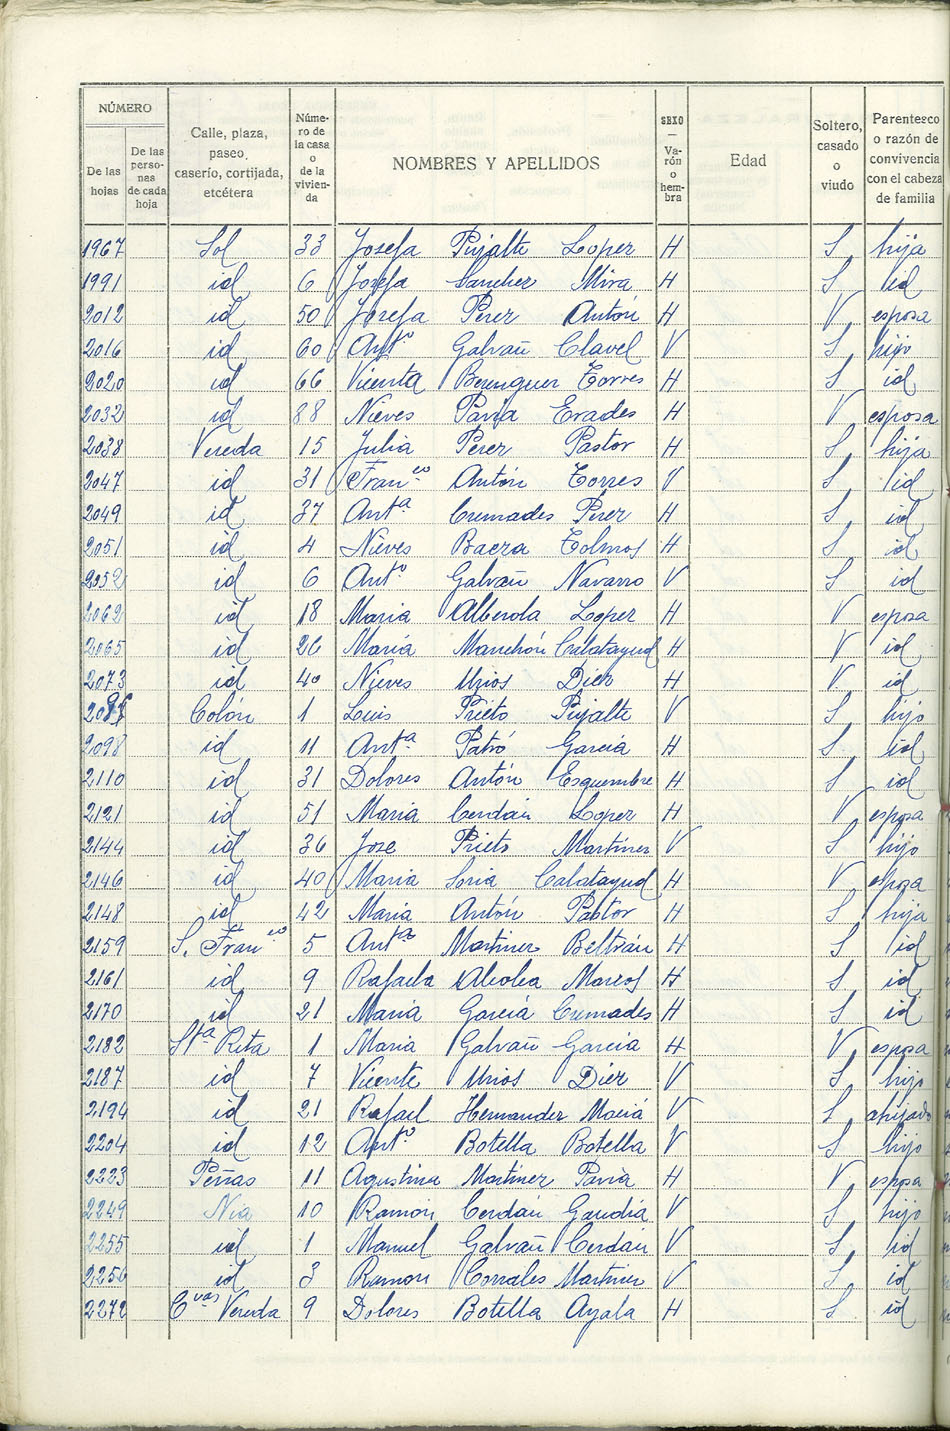 NÚMERO
De las hojas
De las perso-nas de cada hoja
Calle, plaza, paseo, caserío, cortijada, etcétera
Núme-ro de la casa o de la vivien-da
NOMBRES Y APELLIDOS
SEXO — Va-rón o hem-bra
Edad
Soltero, casado o viudo
Parentesco o razón de convivencia con el cabeza de familia
1967 Sol 33 Josefa Pujalte Lopez H S hija
1991 id 6 Josefa Sanchez Mira H S id
2012 id 50 Josefa Perez Antón H V esposa
2016 id 60 Antº Galvañ Clavel V S hijo
2020 id 66 Vicenta Berenguer Torres H S id
2032 id 88 Nieves Pavía Erades H V esposa
2038 Vereda 15 Julia Perez Pastor H S hija
2047 id 31 Franco Antón Torres V S id
2049 id 37 Antª Cremades Perez H S id
2051 id 4 Nieves Baeza Tolmos H S id
2052 id 6 Antº Galvañ Navarro V S id
2062 id 18 Maria Alberola Lopez H V esposa
2065 id 26 Maria Manchón Calatayud H V id
2073 id 40 Nieves Urios Diez H V id
Colón 1 Luis Prieto Pujalte V S hijo
2098 id 11 Antª Patró García H S id
2110 id 31 Dolores Antón Esquembre H S id
2121 id 51 Maria Cerdán Lopez H V esposa
2144 id 36 Jose Prieto Martinez V S hijo
2146 id 40 Maria Soria Calatayud H V esposa
2148 id 42 Maria Antón Pastor H S hija
2159 S. Franco 5 Antª Martinez Beltrán H S id
2161 id 9 Rafaela Abolea Marcos H S id
2170 id 21 Maria García Cremades H S id
2182 Stª Rita 1 Maria Galvañ Garcia H V esposa
2187 id 7 Vicente Urios Diez V S hijo
2194 id 21 Rafael Hernandez Maciá V S ahijado
2204 id 12 Antº Botella Botella V S hijo
2223 Peñas 11 Agustina Martinez Pavia H V esposa
2249 Nia 10 Ramón Cerdán Gandía V S hijo
2255 id 1 Manuel Galvañ Cerdan V S id
2256 id 3 Ramon Corrales Martinez V S id
2272 Cvas Vereda 9 Dolores Botella Ayala H S id